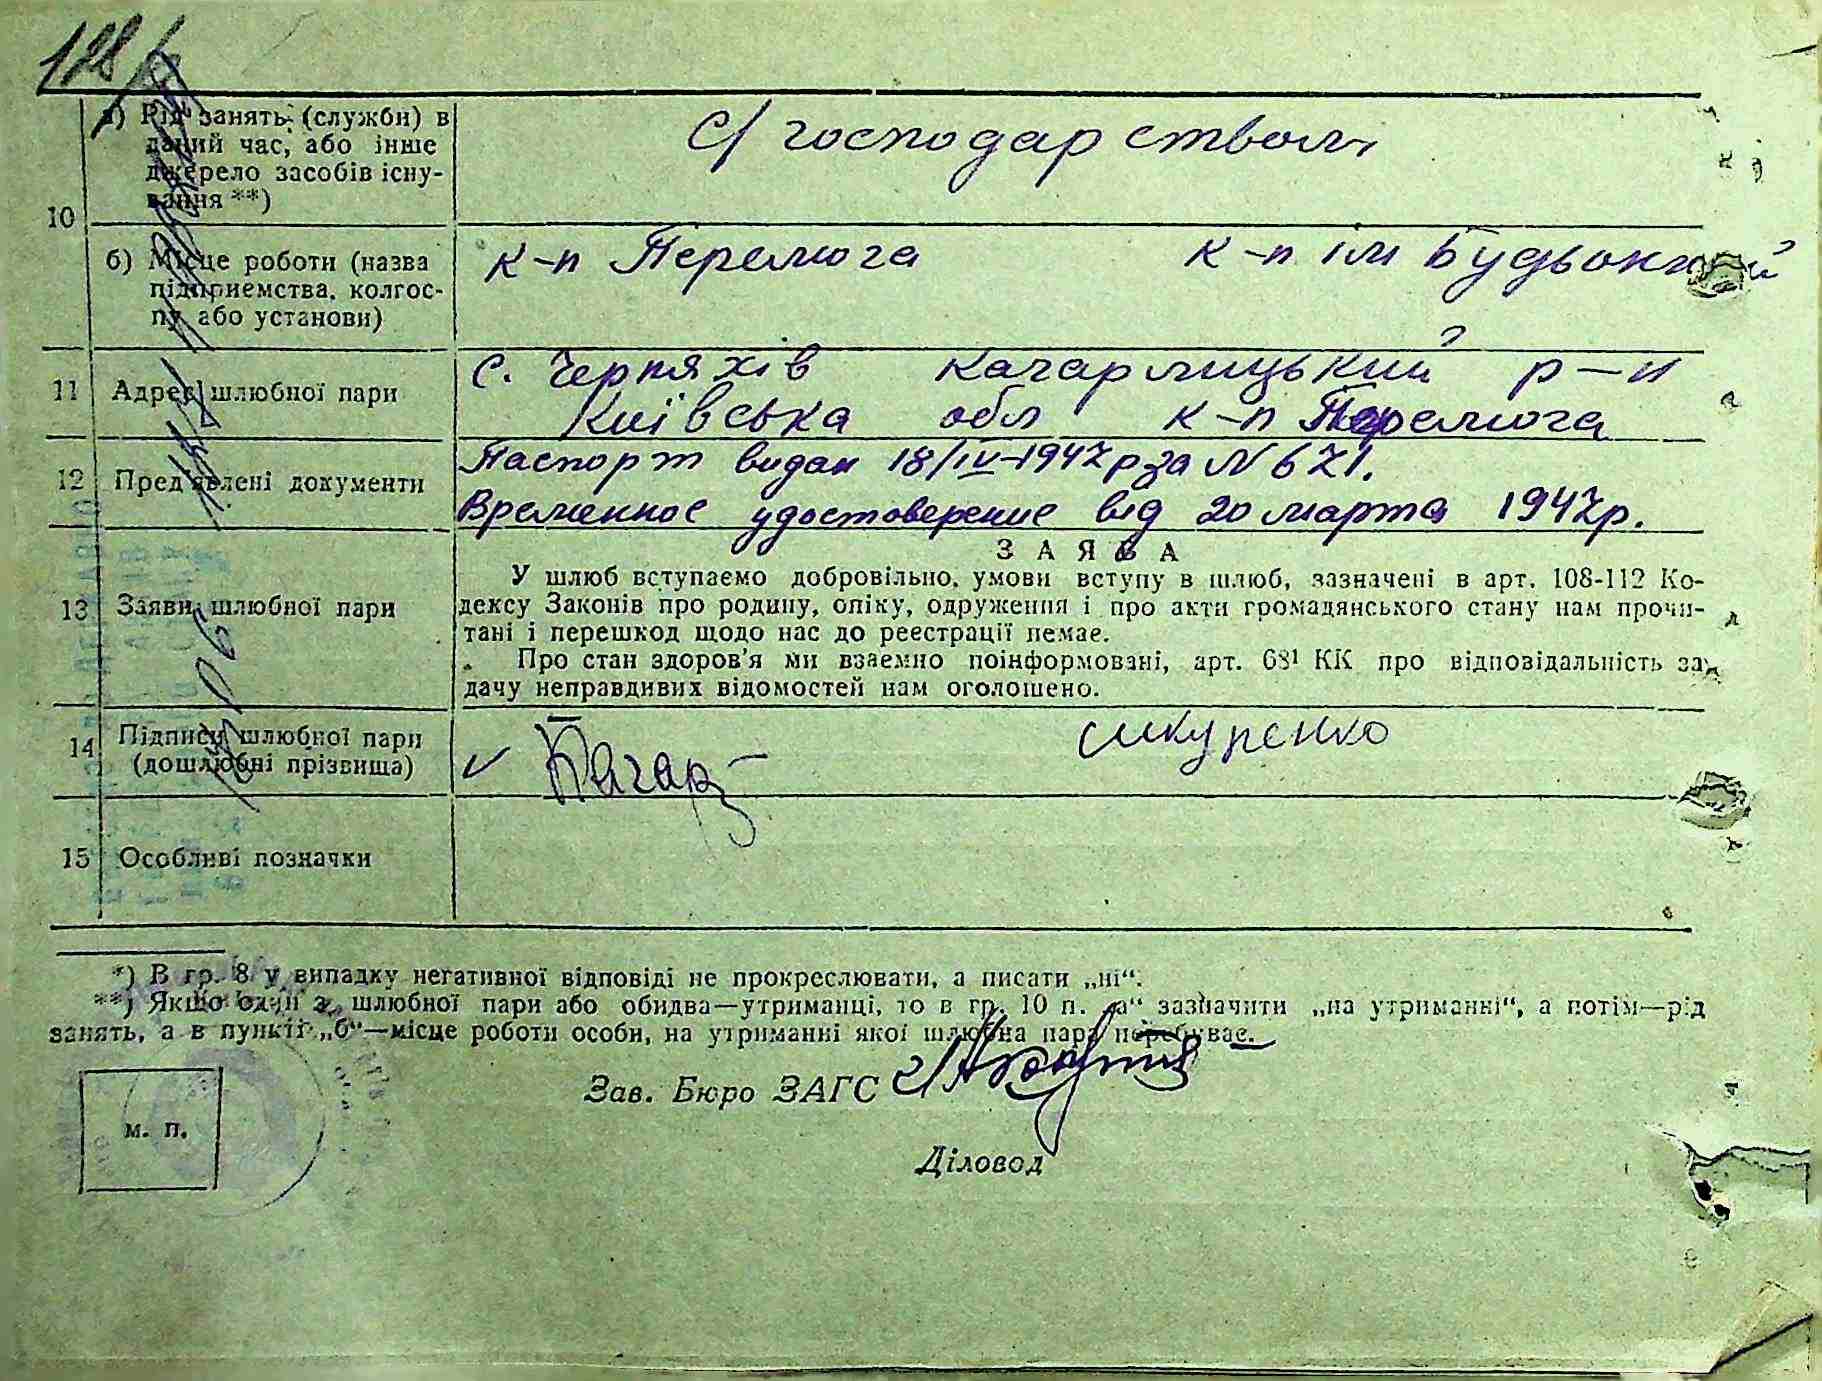 128
10
а) Рід занять (служби) в
даний час, або інше
джерело засобів існу-
вання **)
с/господарством
б) Місце роботи (назва
підприємства, колгос-
пу або установи)
к-п Перемога к-п ім Будьонний
11
Адрес шлюбної пари
с. Черняхів Кагарлицький р-н
Київська обл к-п Перемога
12
Пред'явлені документи
Паспорт видан 18/IV-1947р за N 671.
Временное удостоверение від 20 марта 1947р.
13
Заяви шлюбної пари
ЗАЯВА
У шлюб вступаємо добровільно, умови вступу в шлюб, зазначені в арт. 108-112 Ко-
дексу Законів про родину, опіку, одруження і про акти громадянського стану нам прочи-
тані і перешкод щодо нас до реєстрації немає.
Про стан здоров'я ми взаємно поінформовані, арт. 68¹ КК про відповідальність за
дачу неправдивих відомостей нам оголошено.
14
Підписи шлюбної пари
(дошлюбні прізвища)
сикуренко
15
Особливі позначки
*) В гр. 8 у випадку негативної відповіді не прокреслювати, а писати „ні“.
**) Якщо один з шлюбної пари або обидва—утриманці, то в гр. 10 п. „а“ зазначити „на утриманні“, а потім—рід
занять, а в пункті „б“—місце роботи особи, на утриманні якої шлюбна пара перебуває.
Зав. Бюро ЗАГС
м. п.
Діловод